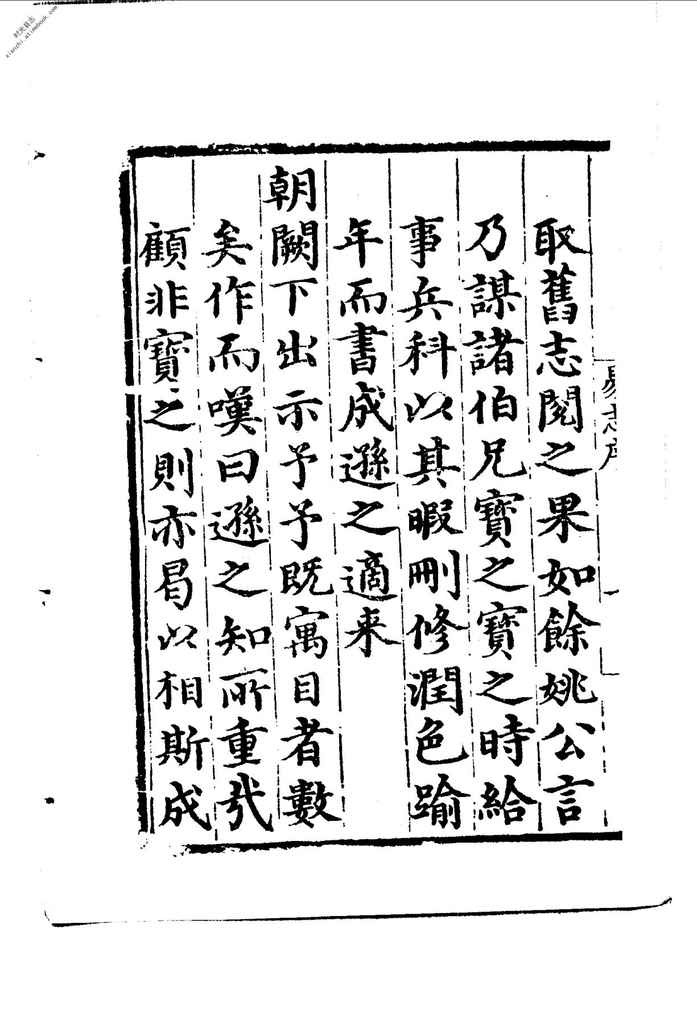 取舊志閱之果如餘姚公言
乃謀諸伯兄寶之寶之時給
事兵科以其暇刪修潤色踰
年而書成遜之適來
朝闕下出示予予既寓目者數
矣作而嘆曰遜之知所重哉
顧非寶之則亦曷以相斯成